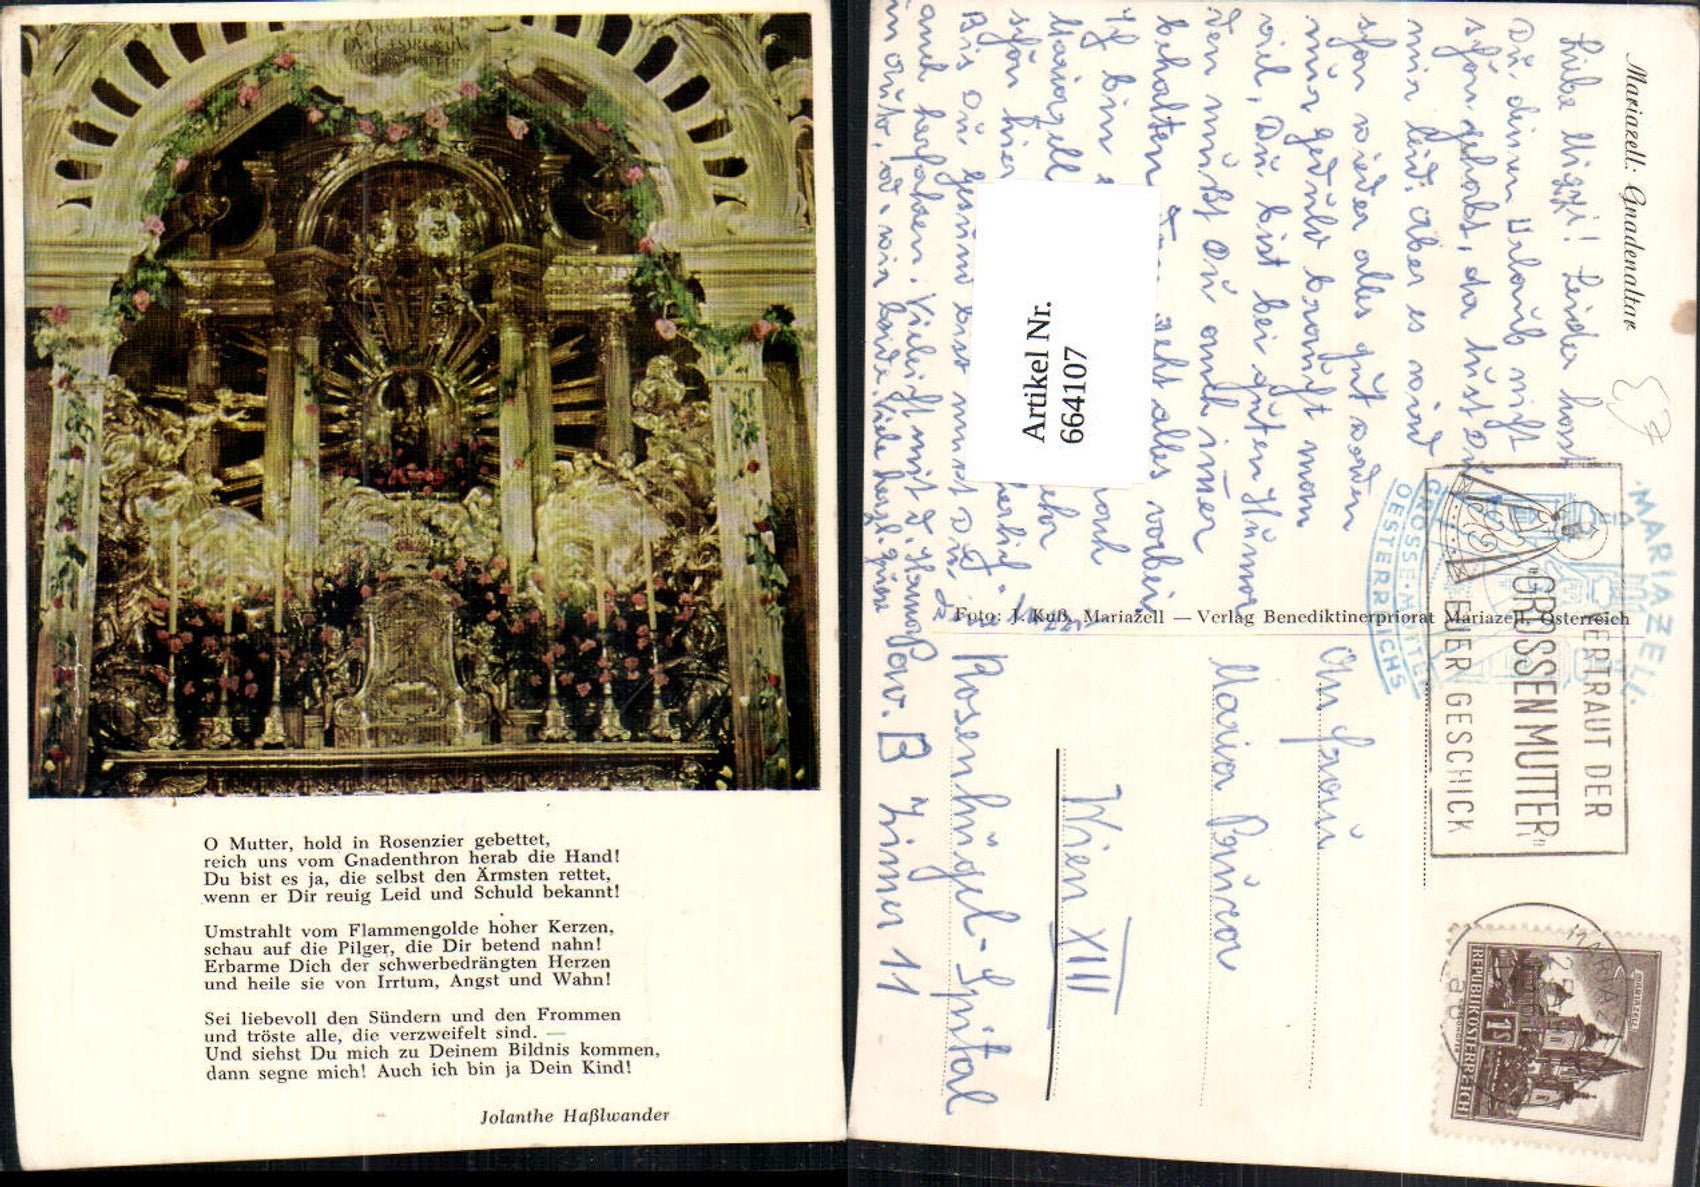 O Mutter, hold in Rosenzier gebettet,
reich uns vom Gnadenthron herab die Hand!
Du bist es ja, die selbst den Ärmsten rettet,
wenn er Dir reuig Leid und Schuld bekannt!
Umstrahlt vom Flammengolde hoher Kerzen,
schau auf die Pilger, die Dir betend nahn!
Erbarme Dich der schwerbedrängten Herzen
und heile sie von Irrtum, Angst und Wahn!
Sei liebevoll den Sündern und den Frommen
und tröste alle, die verzweifelt sind. —
Und siehst Du mich zu Deinem Bildnis kommen,
dann segne mich! Auch ich bin ja Dein Kind!
Jolanthe Haßlwander
Mariazell: Gnadenaltar
Liebe Mizzi! Leider hast
Du deinen Urlaub nicht
schön gehabt, da tust es
mir leid. Aber es wird
schon wieder alles gut werden
nur Geduld braucht man
viel. Du bist bei guten Humor
den mußt Du auch immer
behalten, geht alles vorbei
Ich bin
Mariazell
schön hier
Bis Du gesund bist mußt Du
auch herfahren. Vielleicht mit d.
wir beide. Viele herzl. Grüße
Artikel Nr.
664107
Foto: J. Kuß, Mariazell — Verlag Benediktinerpriorat Mariazell, Österreich
MARIAZELL
GROSSE MUTTER
OESTERREICHS
VERTRAUT DER
"GROSSEN MUTTER"
EUER GESCHICK
REPUBLIK ÖSTERREICH
1S
MARIAZELL
An Frau
Maria
Wien XIII
Rosenhügel-Spital
Pav. B Zimmer 11